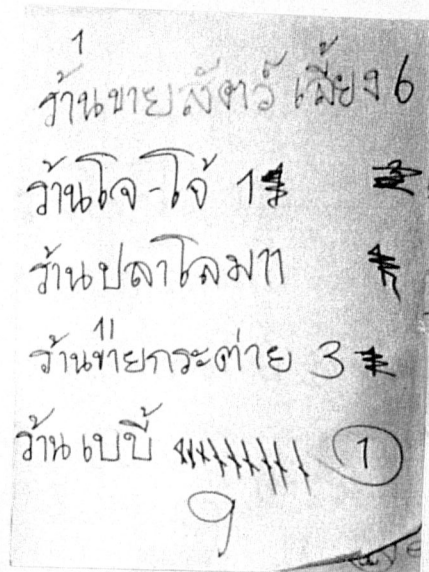 1
ร้านขายสัตว์เลี้ยง 6
ร้านโจ-โจ้ 1
ร้านปลาโลมา
11
ร้านข่ายกระต่าย 3
ร้าน เบบี้ 1
9